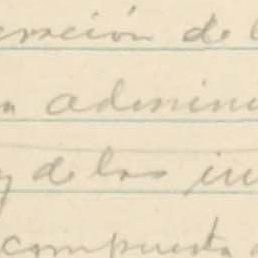 eración de l
n adminis
y de los in
compuesta